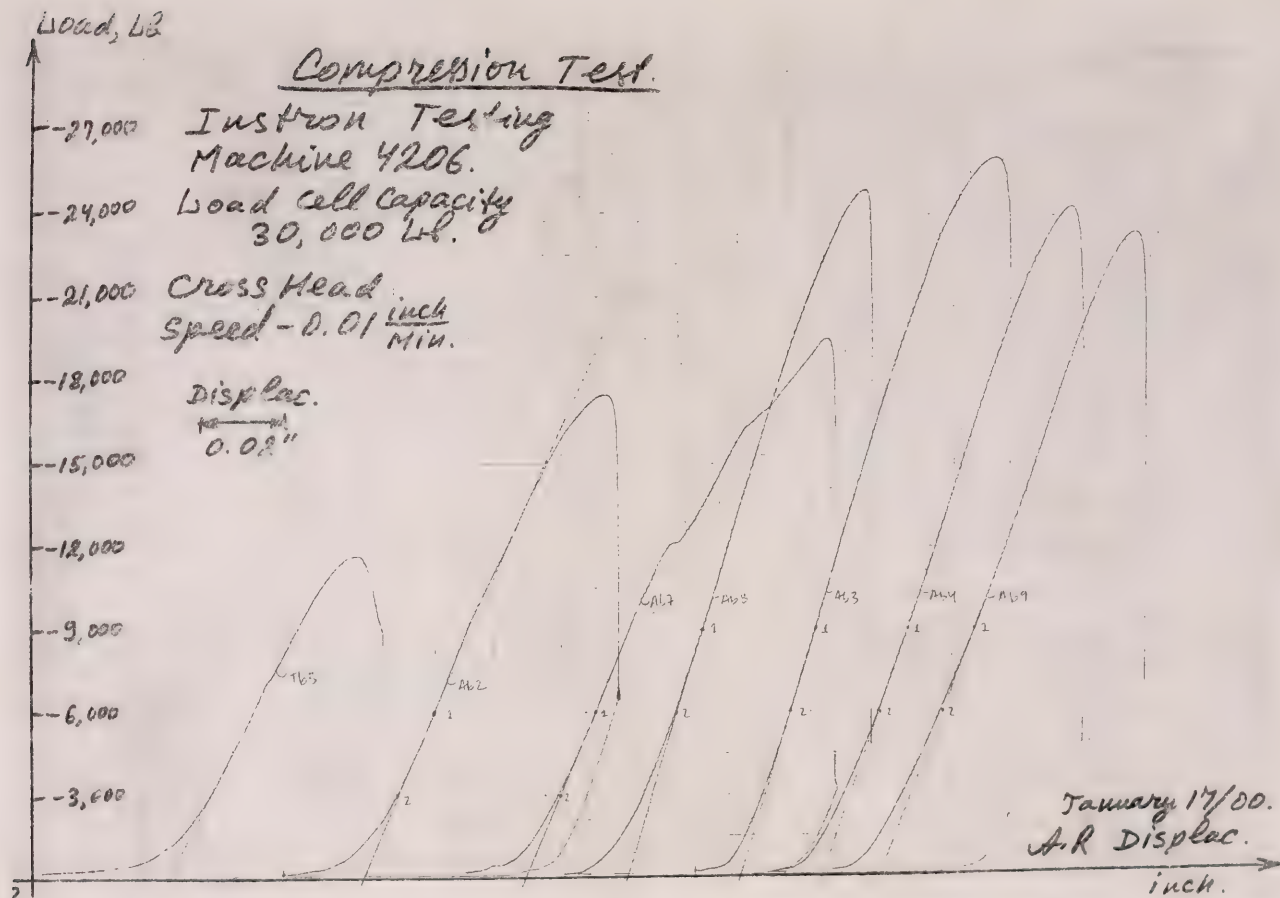 Load, Lb
Compression Test.
Instron Testing
Machine 4206.
Load Cell Capacity
30,000 Lb.
Cross Head
Speed - 0.01 inch
Min.
Displac.
0.02"
-27,000
-24,000
-21,000
-18,000
-15,000
-12,000
-9,000
-6,000
-3,000
Tb5
Ab2
Ab7
Ab3
Ab4
Ab9
1
2
1
2
1
2
1
2
January 17/00.
A.R Displac.
inch.